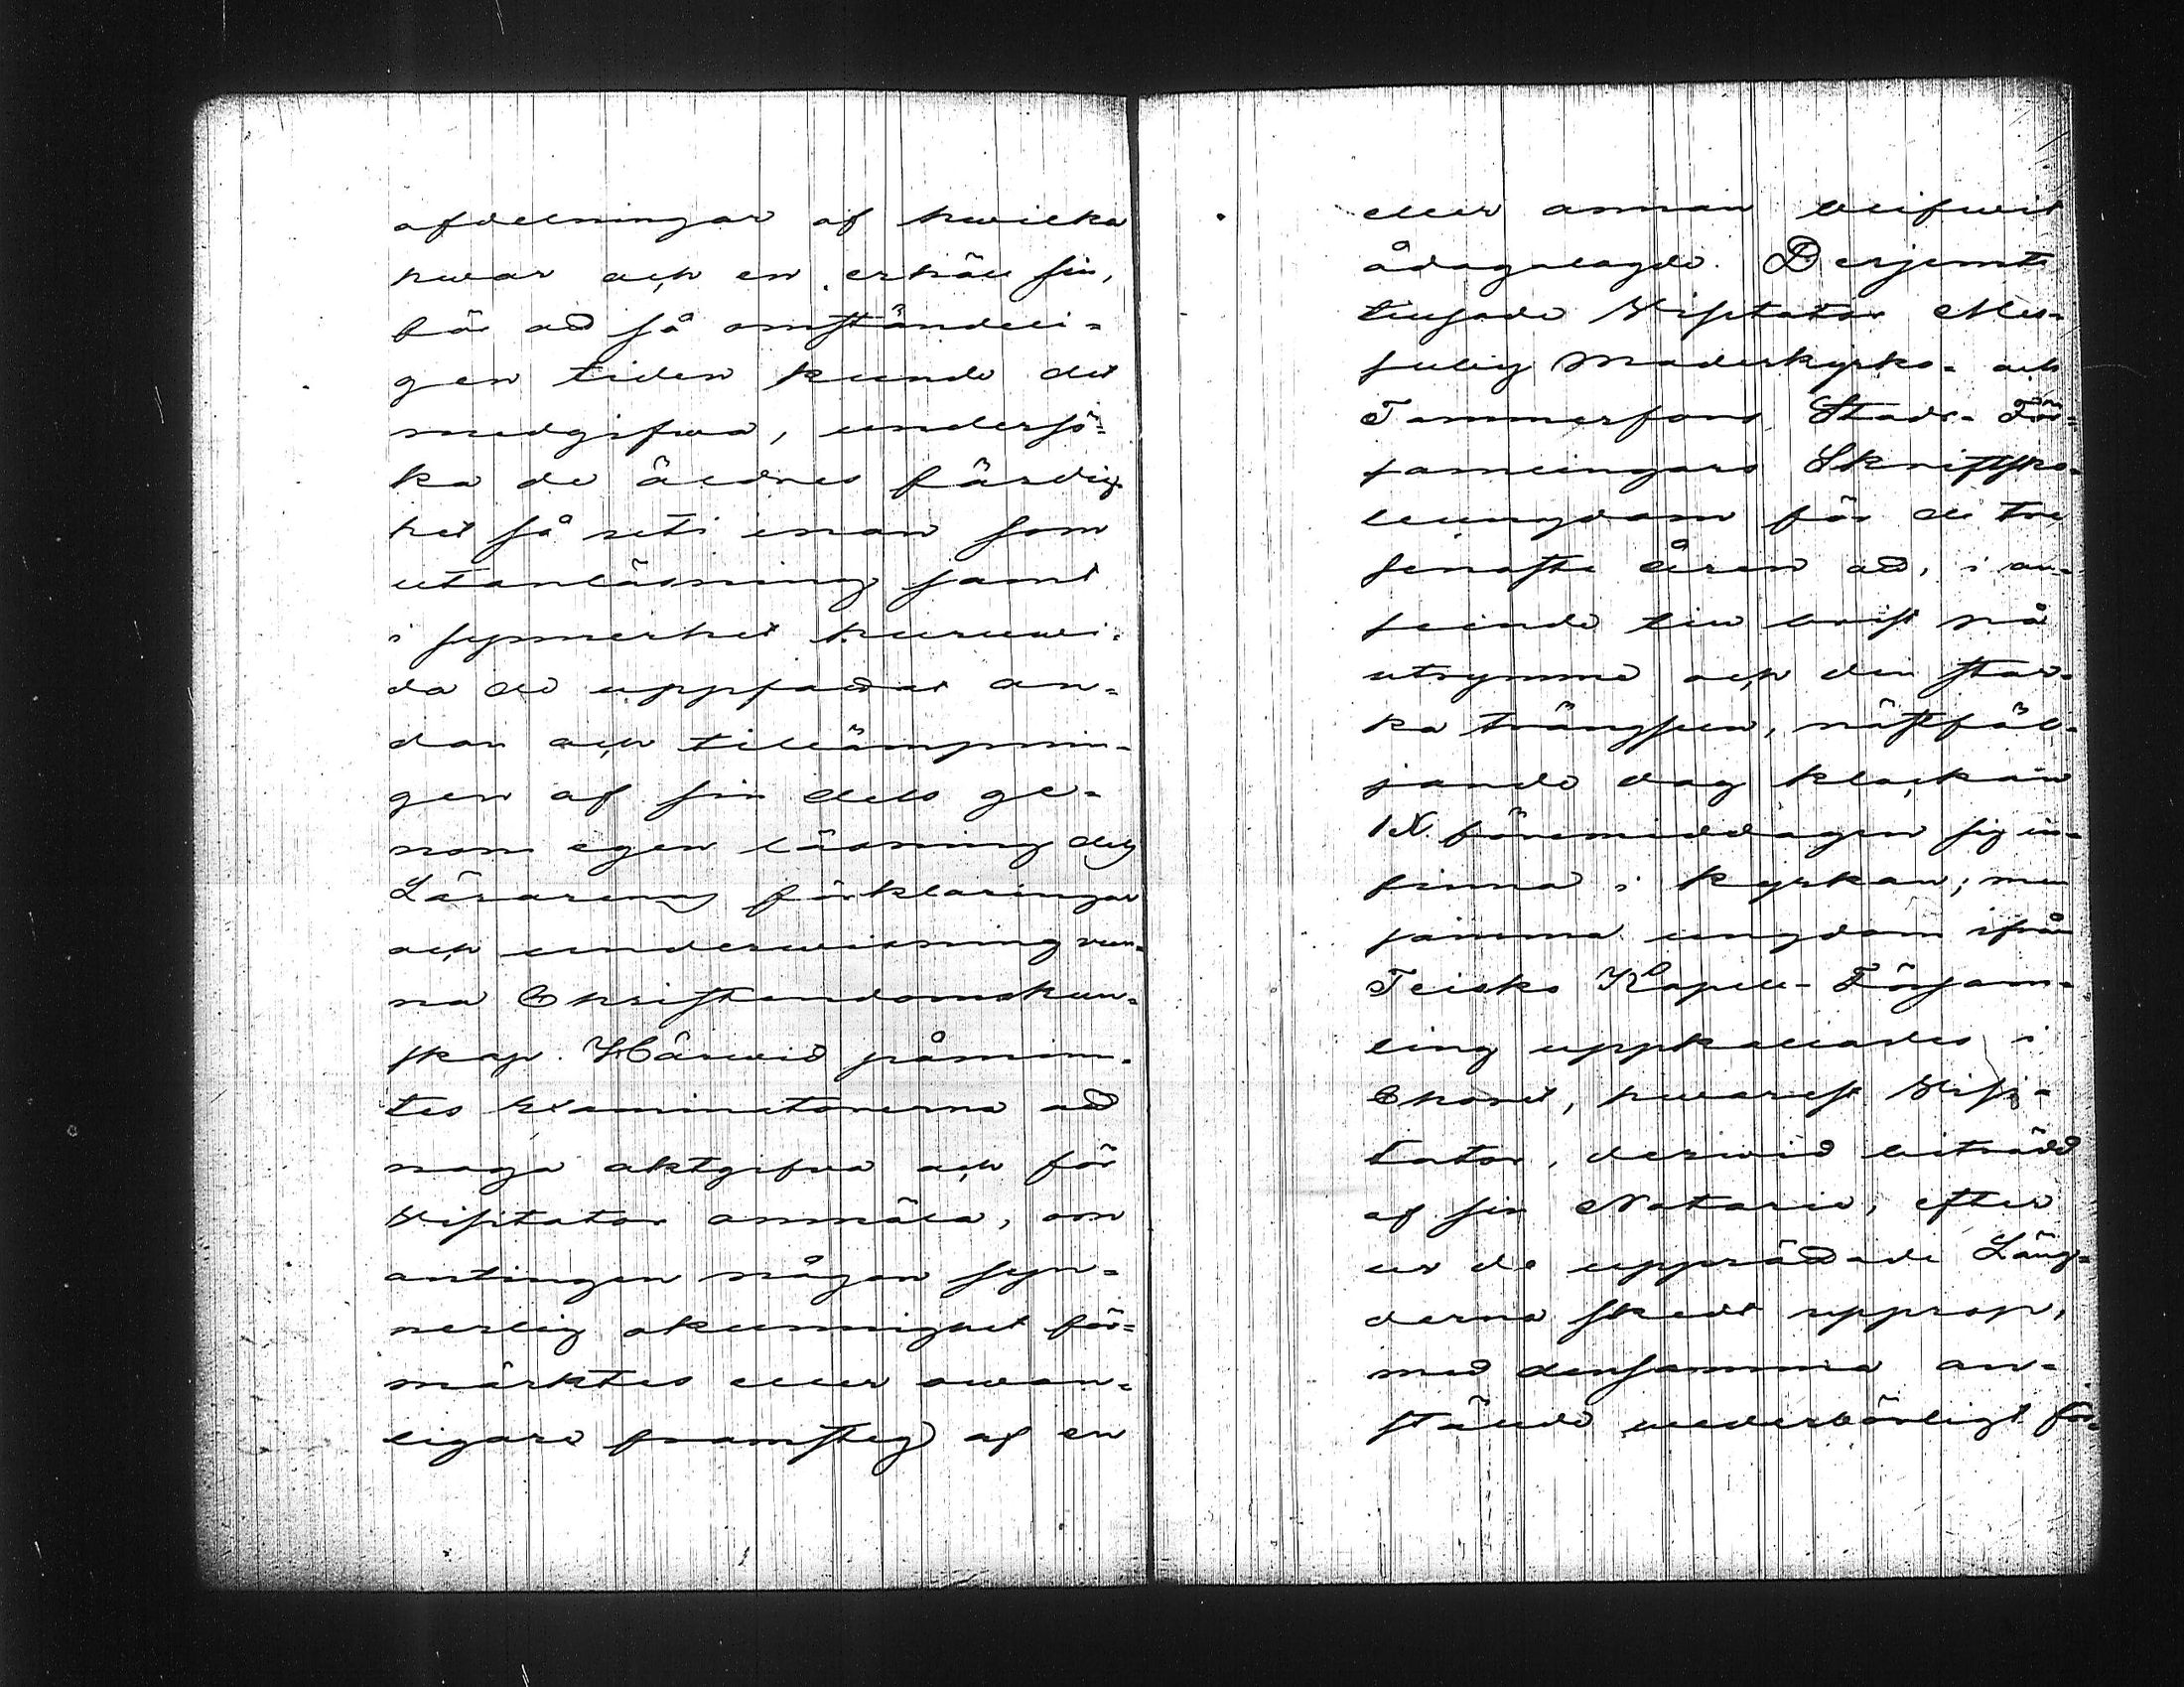 afdelningar af hwilka
hwar och en erhöll sin,
för att så omständeli=
gen tiden kunde det
medgifwa, undersö=
ka de äldres färdig
het så uti innan som
utanläsning samt
i synnerhet huruwi=
da de uppfattat an=
dan och tillämpnin=
gen af sin dels ge=
nom egen läsning dels
Lärarenas förklaringar
och underwisning wun=
na Christendomskun=
skap. Härwid påmin=
tes Examinatorerna att
noga aktgifwa och för
Visitator anmäla, om
antingen någon syn=
nerlig okunnighet för=
märktes eller owan=
ligare framsteg af en
eller annan blifwit
ådagalagde. Derjemte
tillsade Visitator Mes=
suby Moderkyrko- och
Tammerfors Stads- För=
samlingars Skriftsko=
leungdom för de tre
senaste åren att, i an=
seende till brist på
utrymme och den star=
ka trängseln, nästföl=
jande dag klockan
IX förmiddagen sig in=
finna i kyrkan; men
samma ungdom ifrån
Teisko Kapell-Församling=
ling uppkallades i
Choret, hwarest Visi=
tator, derwid biträdd
af sin Notarie, efter
ur de upprättade Läng=
derna skedt upprop,
med densamma an=
stälde wederbörligt för=